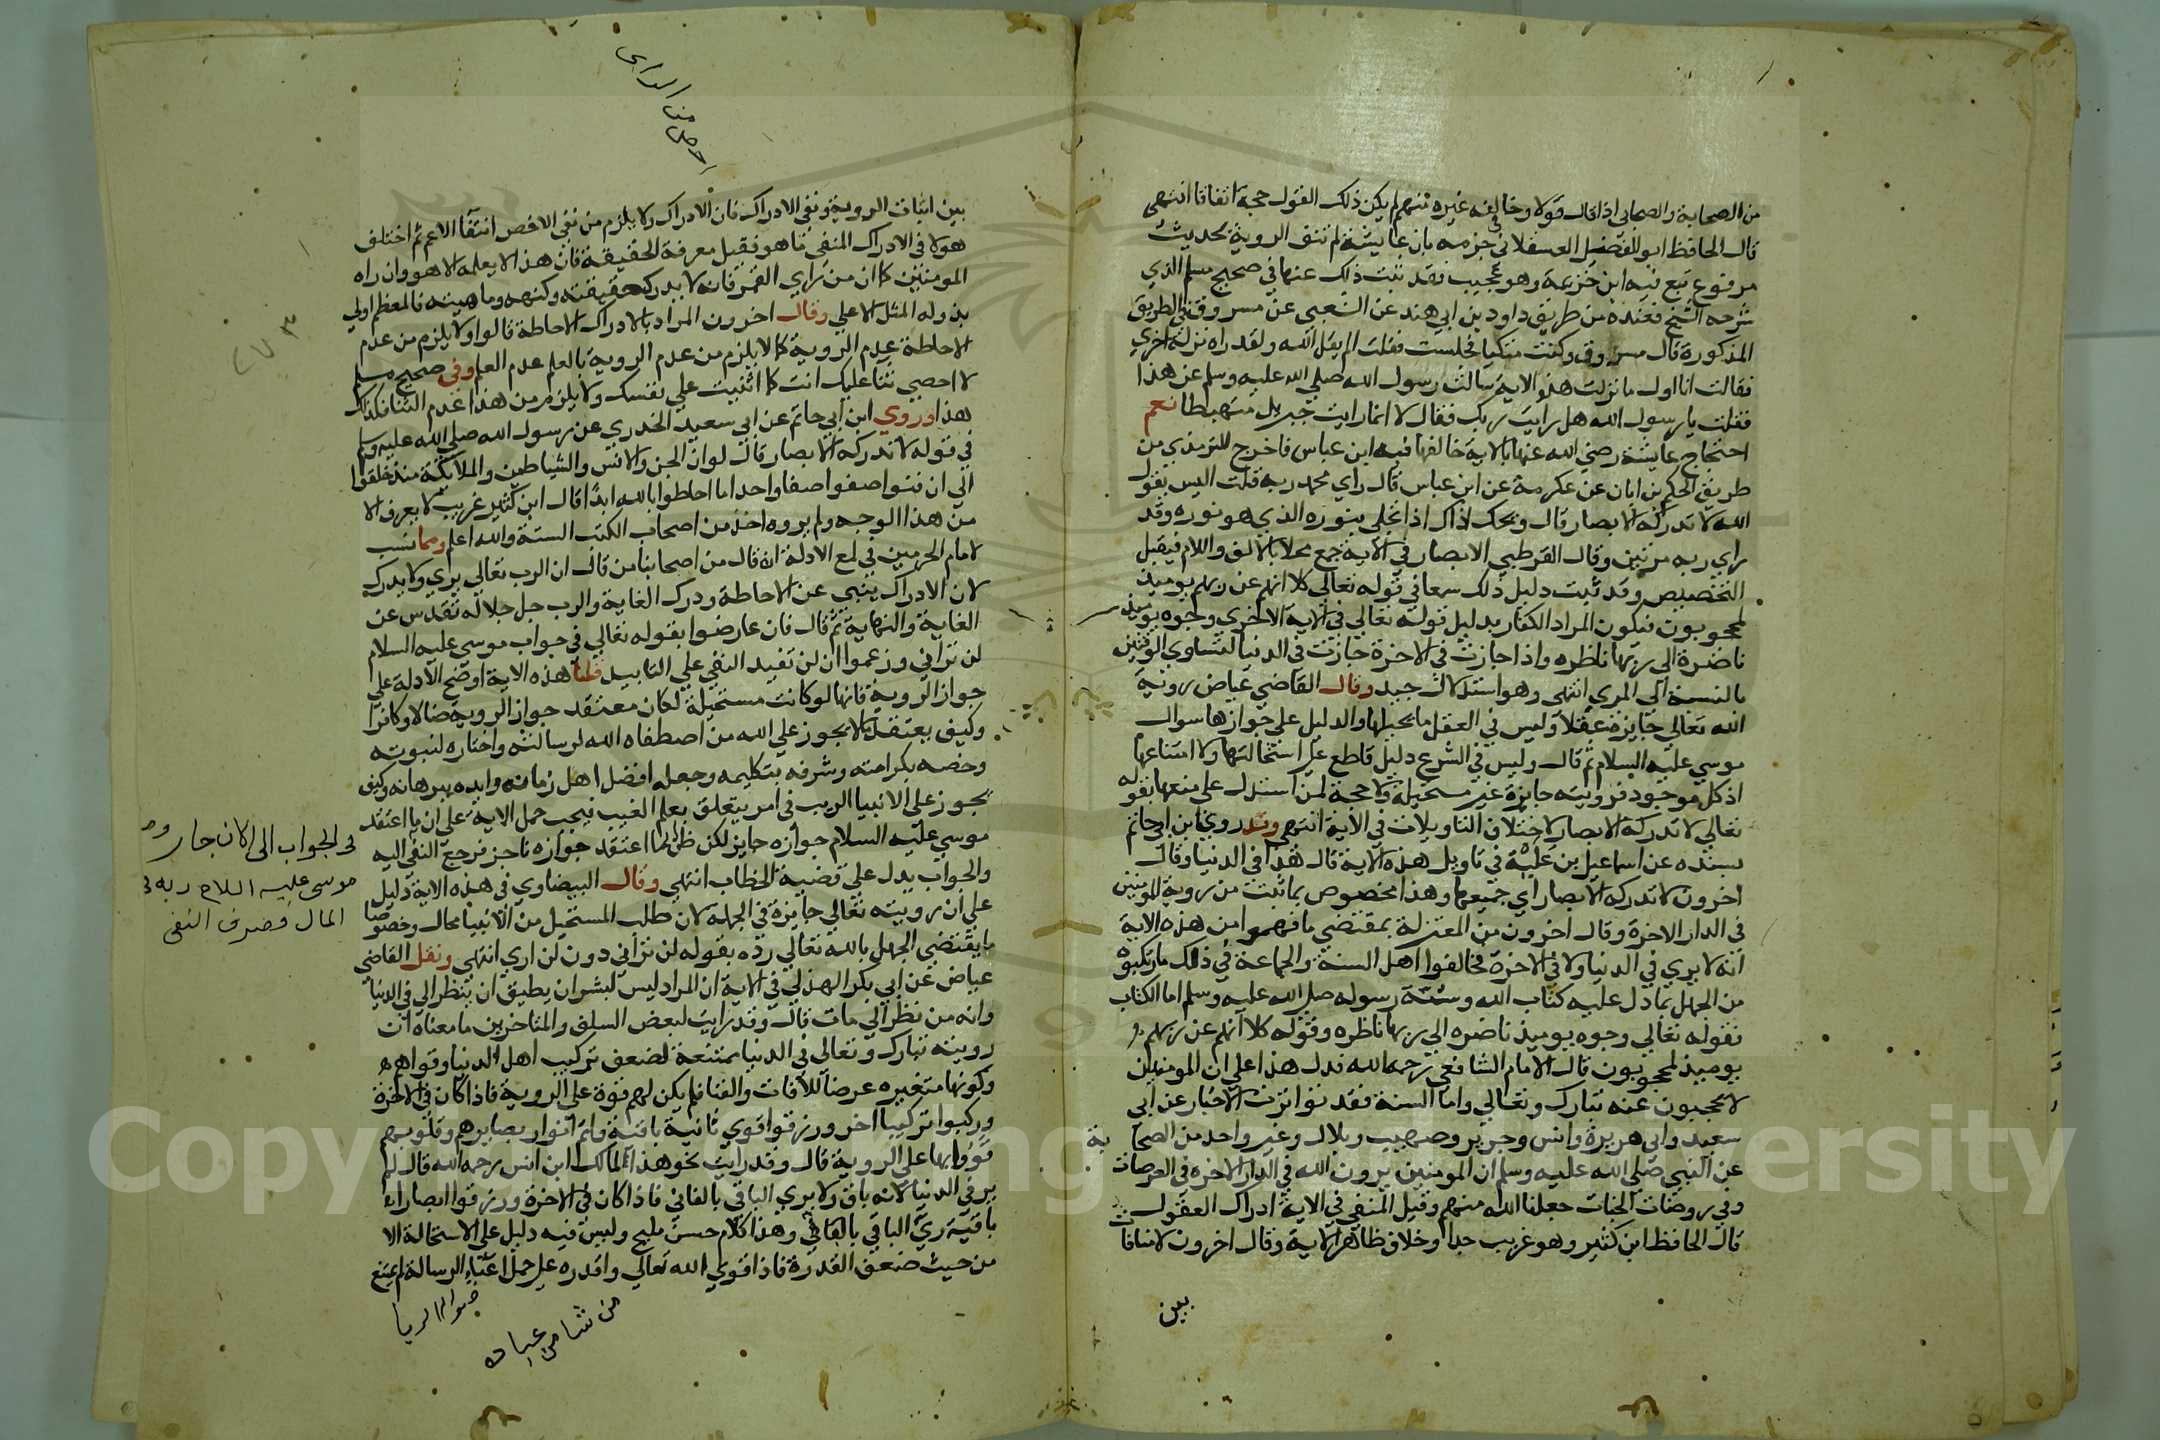 من الصحابة والصحابي اذا قال قولا وخالفه غيره منهم لم يكن ذلك القول حجة اتفاقا انتهى
قال الحافظ ابو الفضل العسقلاني في جزمه بان عايشة لم تنف الروية بحديث
مرفوع تبع فيه ابن خزيمة وهو عجيب فقد ثبت ذلك عنها في صحيح مسلم الذي
شرحه الشيخ فعنده من طريق داود بن ابي هند عن الشعبي عن مسروق في الطريق
المذكورة قال مسروق وكنت متكيا فجلست فقلت الم يقل الله ولقد راه نزلة اخري
فقالت انا اول ما نزلت هذه الاية سالت رسول الله صلي الله عليه وسلم عن هذا
فقلت يا رسول الله هل رايت ربك فقال لا انما رايت جبريل منهبطا نعم
احتجاج عايشة رضي الله عنها بالاية خالفها فيه ابن عباس فاخرج للترمذي من
طريق الحكم بن ابان عن عكرمة عن ابن عباس قال راي محمد ربه قلت اليس يقول
الله لا تدركه الابصار قال ويحك اذاك اذا تجلي بنوره الذي هو نوره وقد
راي ربه مرتين وقال القرطبي الابصار في الاية جمع محلا بالالف واللام فيقبل
التخصيص وقد ثبت دليل ذلك سمعا في قوله تعالي كلا انهم عن ربهم يوميذ
لمحجوبون فيكون المراد الكفار بدليل قوله تعالي في الاية الاخري وجوه يوميذ
ناضرة الي ربها ناظره واذا جازت في الاخرة جازت في الدنيا لتساوي الوقتين
بالنسبة الي المري انتهى وهو استدلال جيد وقال القاضي عياض روية
الله تعالي جايزة عقلا وليس في العقل ما يحيلها والدليل علي جوازها سوال
موسي عليه السلام ثم قال وليس في الشرع دليل قاطع علي استحالتها ولا امتناعها
اذ كل موجود فرويته جايزة غير مستحيلة ولا حجة لمن استدل علي منعها بقوله
تعالي لا تدركه الابصار لاختلاف التاويلات في الاية انتهى وقد روي ابن ابي حاتم
بسنده عن اسماعيل بن علية في تاويل هذه الاية قال هذا في الدنيا وقال
اخرون لا تدركه الابصار اي جميعها وهذا مخصوص بما ثبت من روية المومنين
في الدار الاخرة وقال اخرون من المعتزلة بمقتضي ما فهموا من هذه الاية
انه لا يري في الدنيا ولا في الاخرة فخالفوا اهل السنة والجماعة في ذلك ما ركبوه
من الجهل بما دل عليه كتاب الله وسنة رسوله صلي الله عليه وسلم اما الكتاب
فقوله تعالي وجوه يوميذ ناضره الي ربها ناظره وقوله كلا انهم عن ربهم
يوميذ لمحجوبون قال الامام الشافعي رحمه الله فدل هذا علي ان المومنين
لا يحجبون عنه تبارك وتعالي واما السنة فقد تواترت الاخبار عن ابي
سعيد وابي هريرة وانس وجرير وصهيب وبلال وغير واحد من الصحابة
عن النبي صلي الله عليه وسلم ان المومنين يرون الله في الدار الاخرة في العرصات
وفي روضات الجنات جعلنا الله منهم وقيل المنفي في الاية ادراك العقول
قال الحافظ ابن كثير وهو غريب جدا وخلاف ظاهر الاية وقال اخرون لا منافات
بين
بين اثبات الروية ونفي الادراك فان الادراك ولا يلزم من نفي الاخص انتفا الاعم ثم اختلف
هولا في الادراك المنفي ما هو فقيل معرفة الحقيقة فان هذا لا يعلمه الا هو وان راه
المومنين كما ان من راي القمر فانه لا يدرك حقيقته وكنهه وماهيته فالمعظم اولي
بذ وله المثل الاعلي وقال اخرون المراد بالادراك الاحاطة قالوا ولا يلزم من عدم
الاحاطة عدم الروية كما لا يلزم من عدم الروية بالعلم عدم العلم وفي صحيح مسلم
لا احصي ثنا عليك انت كما اثنيت علي نفسك ولا يلزم من هذا عدم الثنا فكذلك
هذا وروي ابن ابي حاتم عن ابي سعيد الخدري عن رسول الله صلي الله عليه وسلم
في قوله لا تدركه الابصار قال لو ان الجن والانس والشياطين والملايكة منذ خلقوا
الي ان فنوا صفوا صفا واحدا ما احاطوا بالله ابدا قال ابن كثير غريب لا يعرف الا
من هذا الوجه ولم يروه احد من اصحاب الكتب الستة والله اعلم ومما نسب
لامام الحرمين في لمع الادلة انه قال من اصحابنا من قال ان الرب تعالي يري ولا يدرك
لان الادراك ينبي عن الاحاطة ودرك الغاية والرب جل جلاله تقدس عن
الغاية والنهاية ثم قال فان عارضوا بقوله تعالي في جواب موسي عليه السلام
لن تراني وزعموا ان لن تفيد النفي علي التابيد قلنا هذه الاية اوضح الادلة علي
جواز الروية فانها لو كانت مستحيلة لكان معتقد جواز الروية ضالا وكافرا
وكيف يعتقد ما لا يجوز علي الله من اصطفاه الله لرسالته واختاره لنبوته
وخصه بكرامته وشرفه بتكليمه وجعله افضل اهل زمانه وايده ببرهانه وكيف
يجوز علي الانبيا الريب في امر يتعلق بعلم الغيب فيجب حمل الاية علي ان ما اعتقد
موسي عليه السلام جوازه جايز لكن ظن لما اعتقد جوازه ناجز فرجع النفي اليه
والجواب يدل علي قضية الخطاب انتهي وقال البيضاوي في هذه الاية دليل
علي ان رويته تعالي جايزة في الجملة لان طلب المستحيل من الانبيا محال وخصوصا
ما يقتضي الجهل بالله تعالي رده بقوله لن تراني دون لن اري انتهي ونقل القاضي
عياض عن ابي بكر الهذلي في الاية ان المراد ليس لبشر ان يطيق ان ينظر الي في الدنيا
وانه من نظر الي مات قال وقد رايت لبعض السلف والمتاخرين ما معناه ان
رويته تبارك وتعالي في الدنيا ممتنعة لضعف تركيب اهل الدنيا وقواهم
وكونها متغيره عرضا للافات والفنا فلم يكن لهم قوة علي الروية فاذا كان في الاخرة
وركبوا تركيبا اخر ورزقوا قوي ثانية باقية واتم انوار بصايرهم وقلوبهم
قووا بها علي الروية قال وقد رايت نحو هذا لمالك ابن انس رحمه الله قال لم
ير في الدنيا لانه باق ولا يري الباقي بالفاني فاذا كان في الاخرة ورزقوا ابصارا
باقية ري الباقي بالباقي وهذا كلام حسن مليح وليس فيه دليل علي الاستحالة الا
من حيث ضعف القدرة فاذا قوي الله تعالي واقدره علي حمل اعباء الرسالة لم يمتنع
من شا من عباده
وموسى عليه السلام ربه في
المال فصرف النفي
Copyright © King Saud University